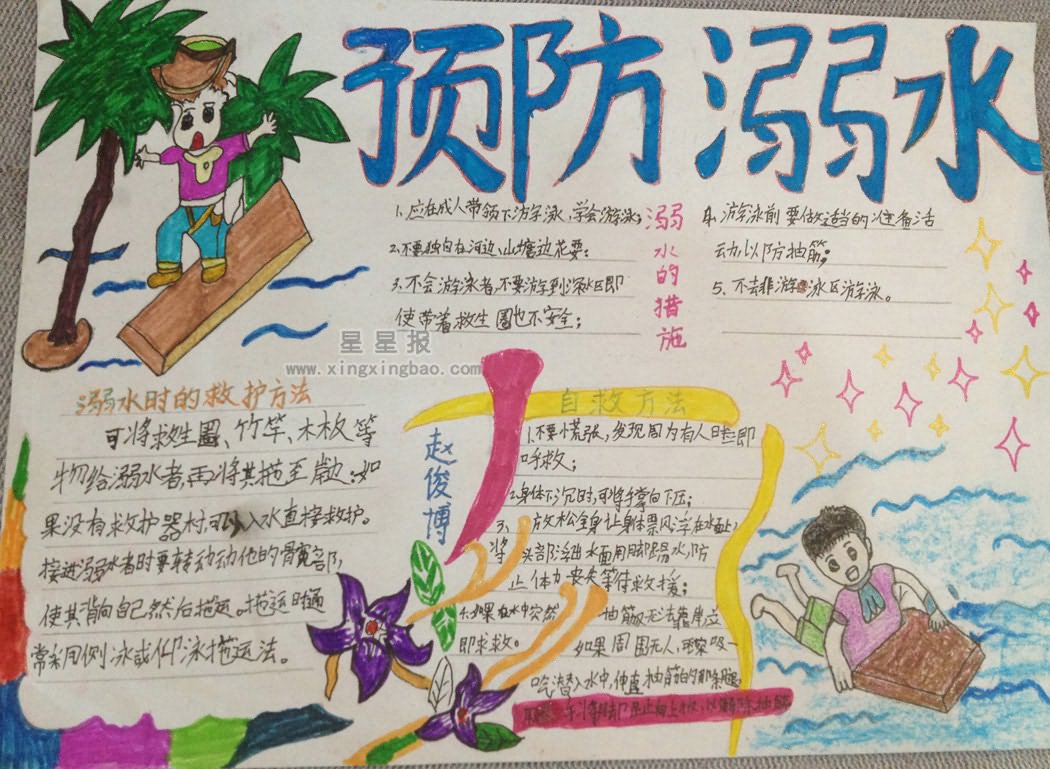 预防溺水
溺水的措施
1、应在成人带领下游泳,学会游泳;
2、不要独自在河边、山塘边花耍;
3、不会游泳者,不要游到深水区即
使带着救生圈也不安全;
4、游泳前要做适当的准备活
动,以防抽筋;
5、不去非游泳区游泳。
星星报
www.xingxingbao.com
溺水时的救护方法
可将救生圈、竹竿、木板等
物给溺水者,再将其拖至岸边;如
果没有救护器材,可入水直接救护。
接近溺水者时要转动动他的髋部,
使其背向自己然后拖运。拖运时通
常采用侧泳或仰泳拖运法。
赵俊博
自救方法
1.不要慌张,发现周为有人时立即
呼救;
2.身体下沉时,可将手掌向下压;
3、放松全身让身体票风浮在水面上
将头部浮出水面用脚踢水,防
止体力丧失等待救援;
4.如果在水中突然抽筋又无法靠岸立
即求救。如果周围无人,可深吸一
吃潜入水中,伸直抽筋的那条腿,